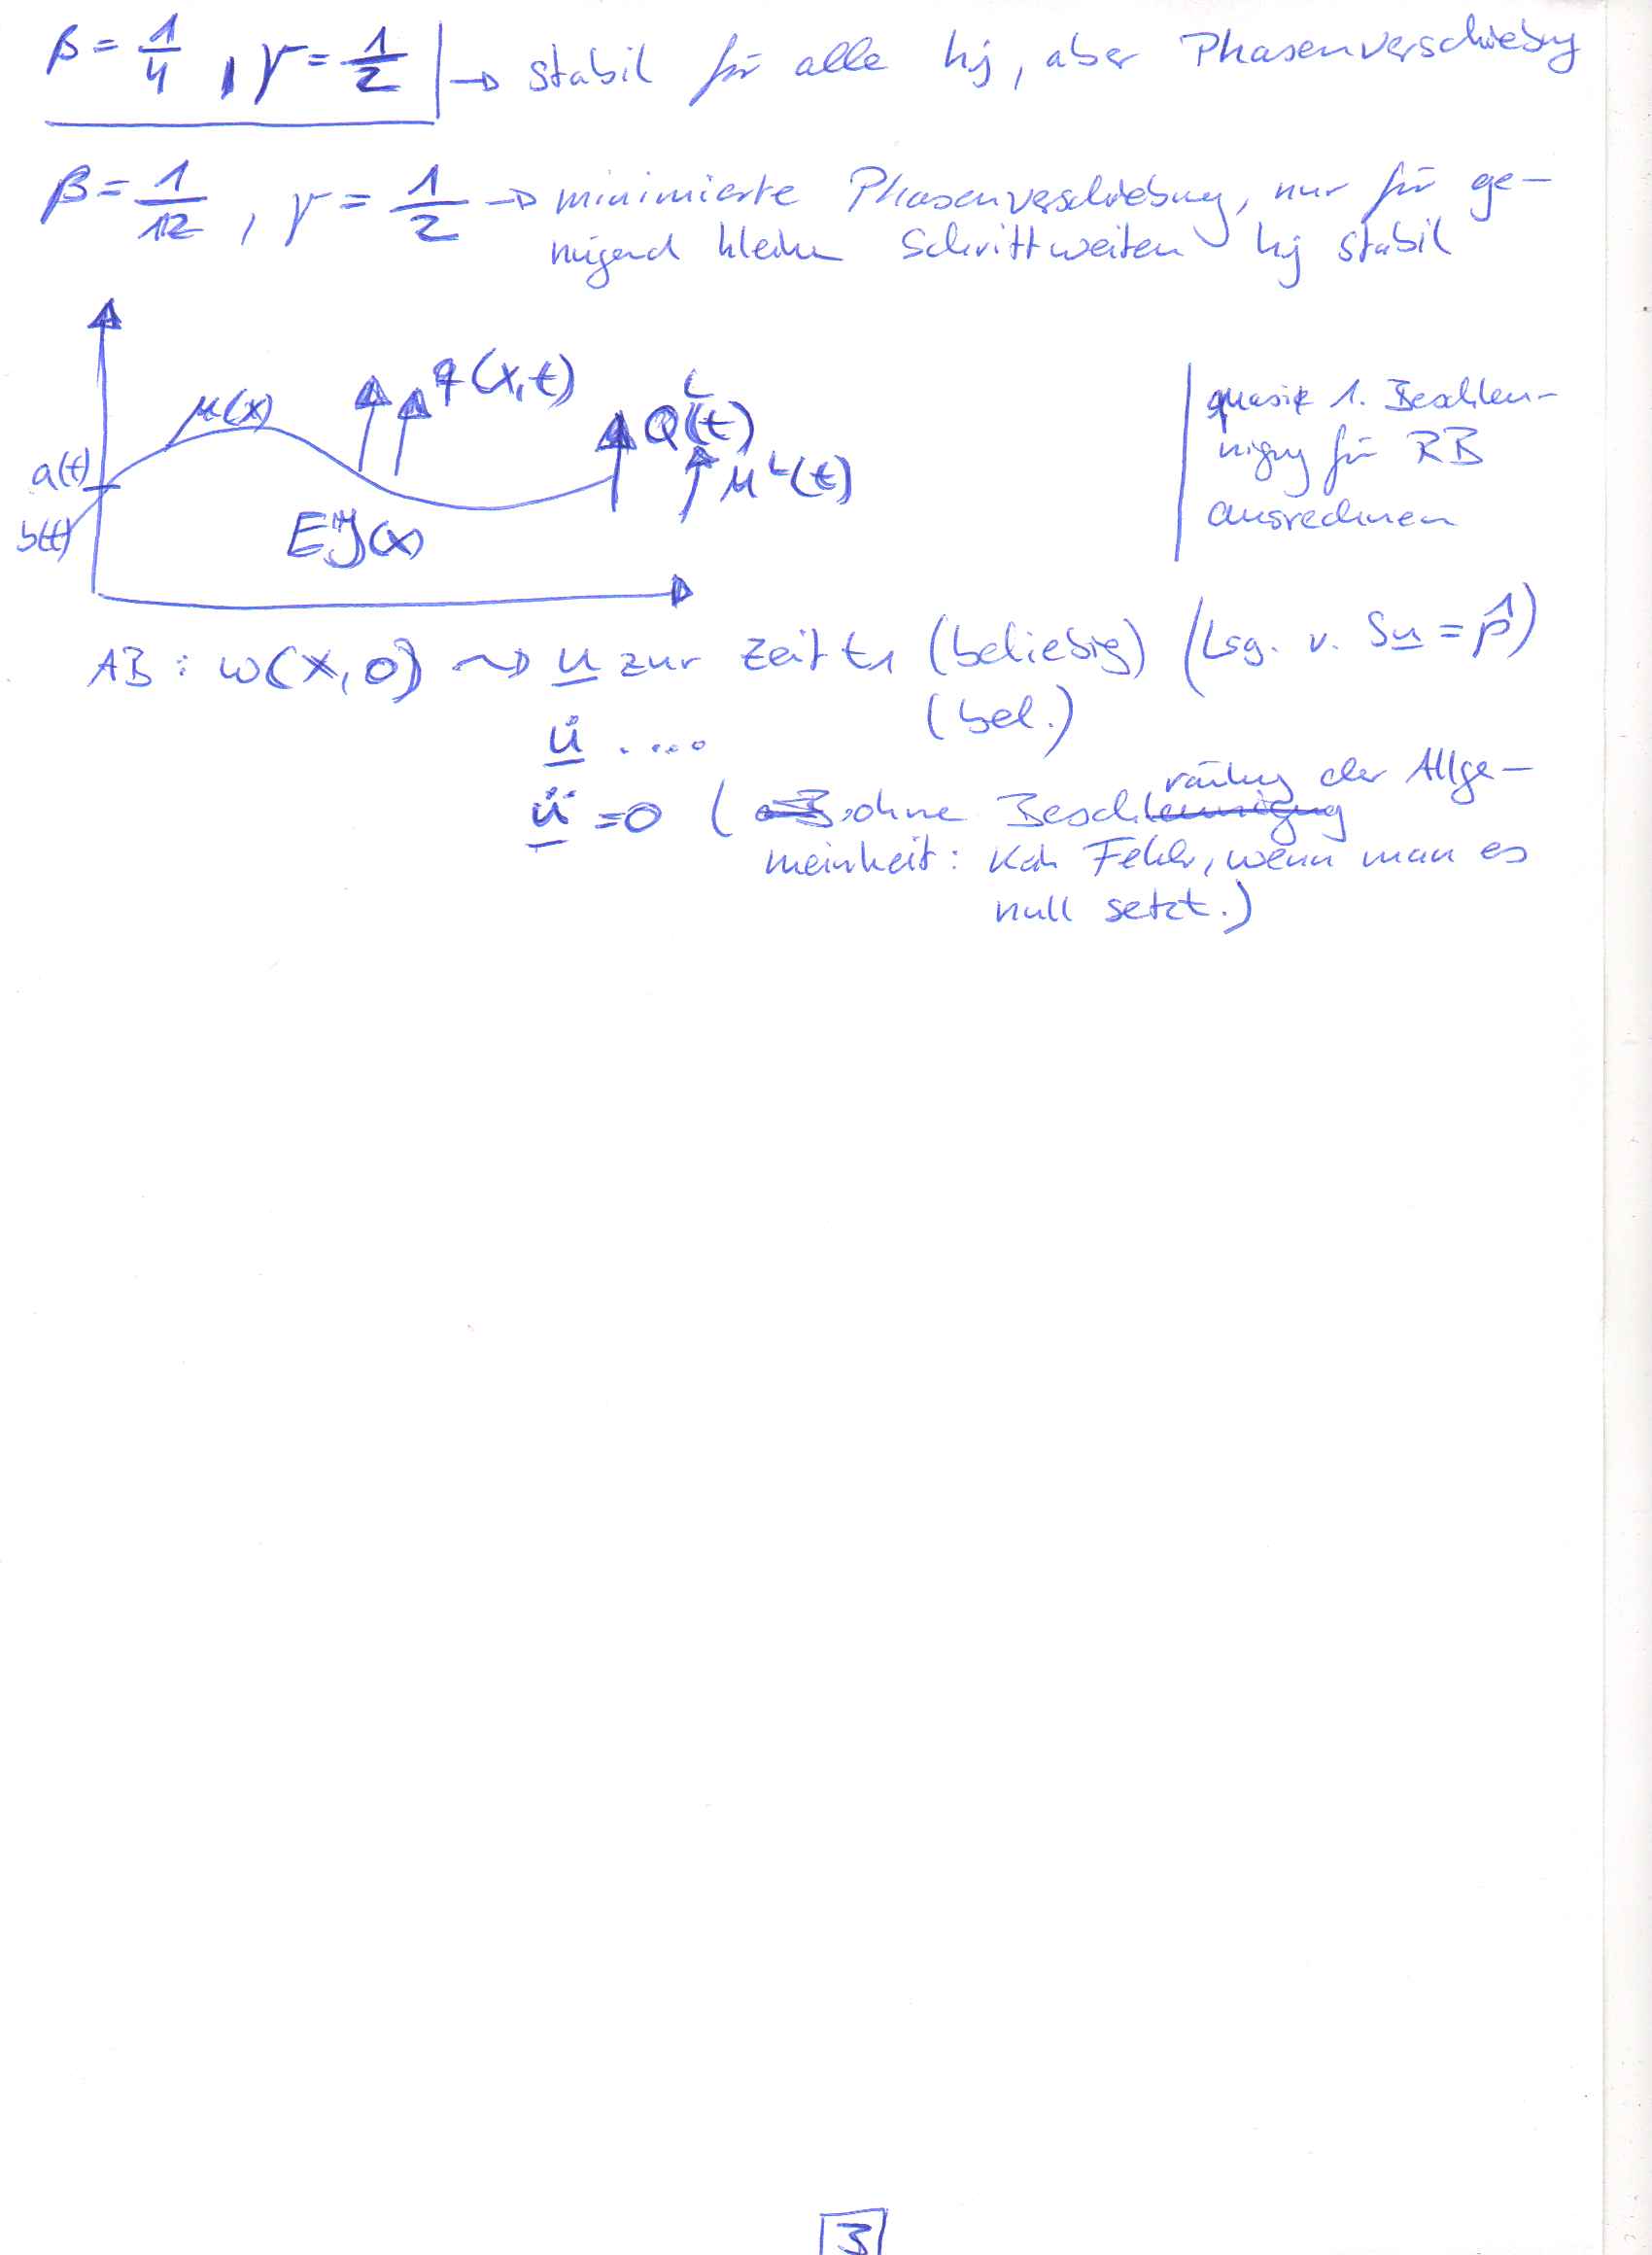 β = 1/4 , γ = 1/2 → stabil für alle hj, aber Phasenverschiebung
β = 1/12 , γ = 1/2 → minimierte Phasenverschiebung, nur für ge-
nügend kleine Schrittweiten hj stabil
μ(x)
q(x,t)
Q^L(t)
M^L(t)
a(t)
b(t)
EJ(x)
quasi 1. Beschleu-
nigung für RB
ausrechnen
AB: w(x,0) ⤳ u zur Zeit t1 (beliebig) (Lsg. v. Su = p̂)
u̇ .... (bel.)
ü = 0 ( ohne Beschränkung der Allge-
meinheit: Kein Fehler, wenn man es
null setzt.)
3